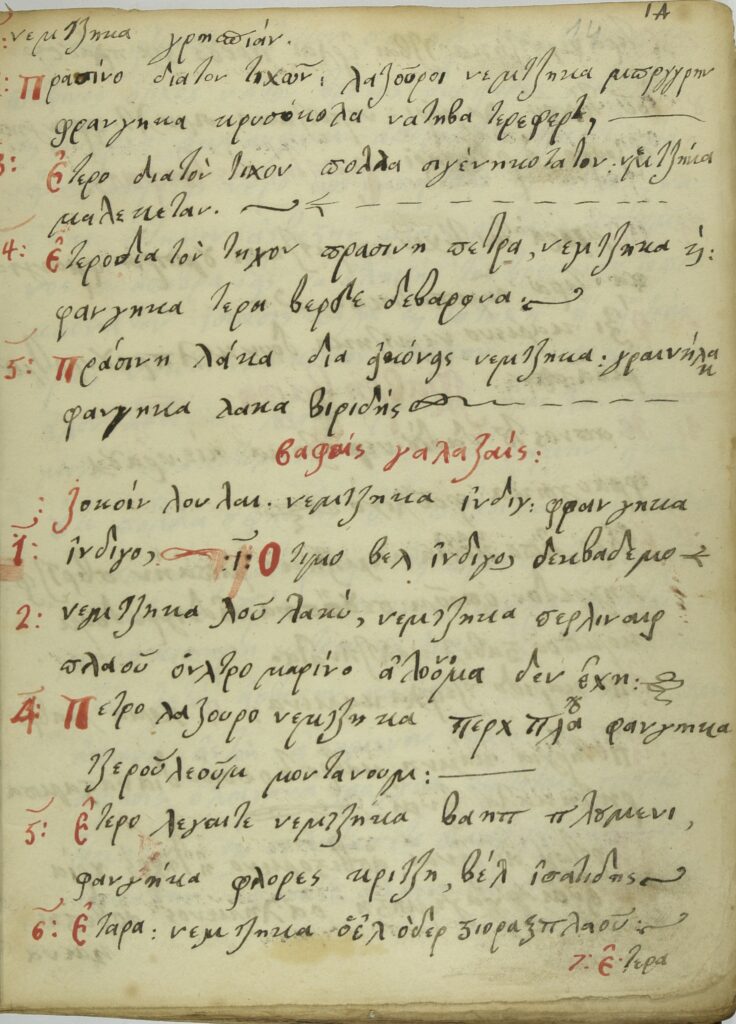 1Α
14
νεμτζηκα γρησπιάν.
Πρασίνο διατον τιχων: λαζούροι νεμτζηκα μπργγρην
φρανγηκα κρυσόκολα νατηβα τερεφερτε,
3: Ετερο διατον τιχον πολλα σιγένηκοτατον: νεμτζήκα
μαλεκεταν.
4: Ετεροδια τον τηχον πρασινη πετρα, νεμτζηκα ή:
φανγηκα τερα βερδε δεβαρονα:
5: Πράσινη λάκα δια ηκόνας νεμτζηκα: γραινήλακ
φανγηκα λακα βιριδής
βαφαίς γαλαζαίς:
ζοκοίν λουλακι. νεμτζηκα ίνδιγ: φρανγηκα
1: ίνδιγο, :1: Οτιμο βελ ίνδιγο, δεκβαδεμο
2: νεμτζηκα λουλακύ, νεμτζηκα περλιναιρ
πλαού όνλτρο μαρίνο άλλο όνομα δεν έχη:
4: Πετρο λαζουρο νεμτζηκα περχ πλα φανγηκα
τζερούλεούμ μοντανουμ:
5: Ετερο λεγαιτε νεμτζηκα βαηπ πλυμενι,
φανγήκα φλορες κριτζη, βέλ ισατιδης
6: Εταρα: νεμτζηκα οέλ όδερ ζιοραξπλαού:
7: Ετερα